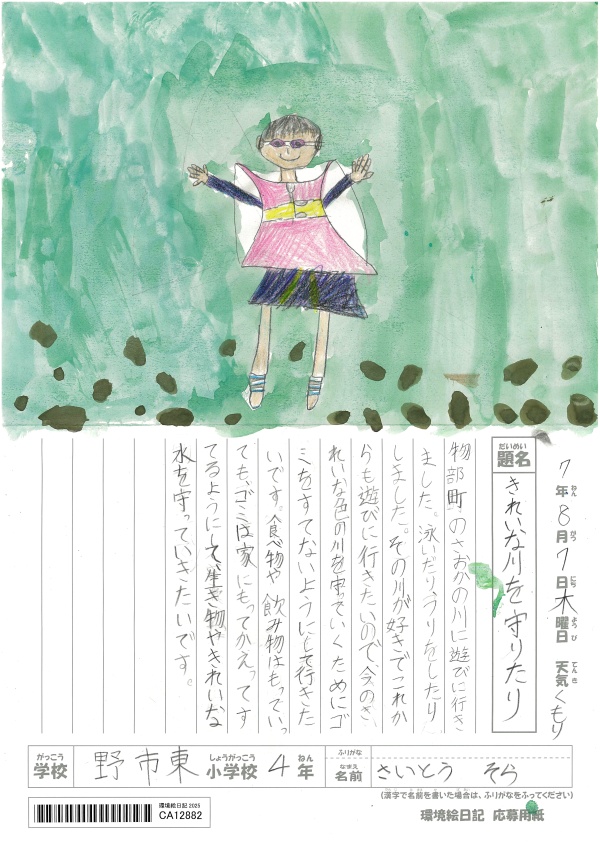 7年ねん8月がつ7日にち木曜日ようび 天気てんきくもり
題名だいめい きれいな川を守りたり
物部町のさおかの川に遊びに行き
ました。泳いだり、つりをしたり
しました。その川が好きでこれか
らも遊びに行きたいので、今のき
れいな色の川を守っていくためにゴ
ミをすてないようにして行きた
いです。食べ物や飲み物はもってい
ても、ゴミは家にもってかえってす
てるようにして、生き物やきれいな
水を守っていきたいです。
がっこう 学校 野市東 しょうがっこう 小学校 4 ねん 年 ふりがな なまえ 名前 さいとう そら
(漢字で名前を書いた場合は、ふりがなをふってください)
環境絵日記 応募用紙
環境絵日記 2025
CA12882